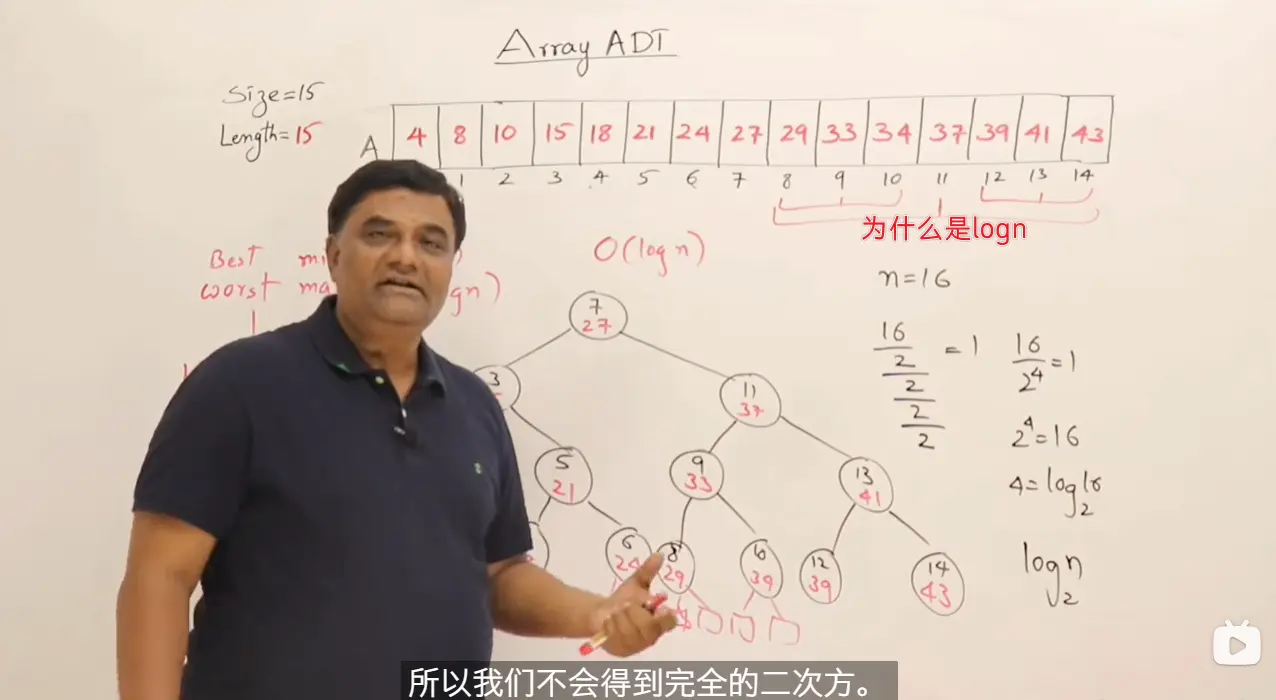 Array ADT
Size=15
Length=15
A 4 8 10 15 18 21 24 27 29 33 34 37 39 41 43
1 2 3 4 5 6 7 8 9 10 11 12 13 14
为什么是logn
Best
worst
O(log n)
n=16
7
27
3
11
37
5
21
9
33
13
41
6
24
8
29
10
39
12
39
14
43
16
2
2
2
2
=1
16
2⁴
=1
2⁴=16
4=log₂16
log₂n
所以我们不会得到完全的二次方。